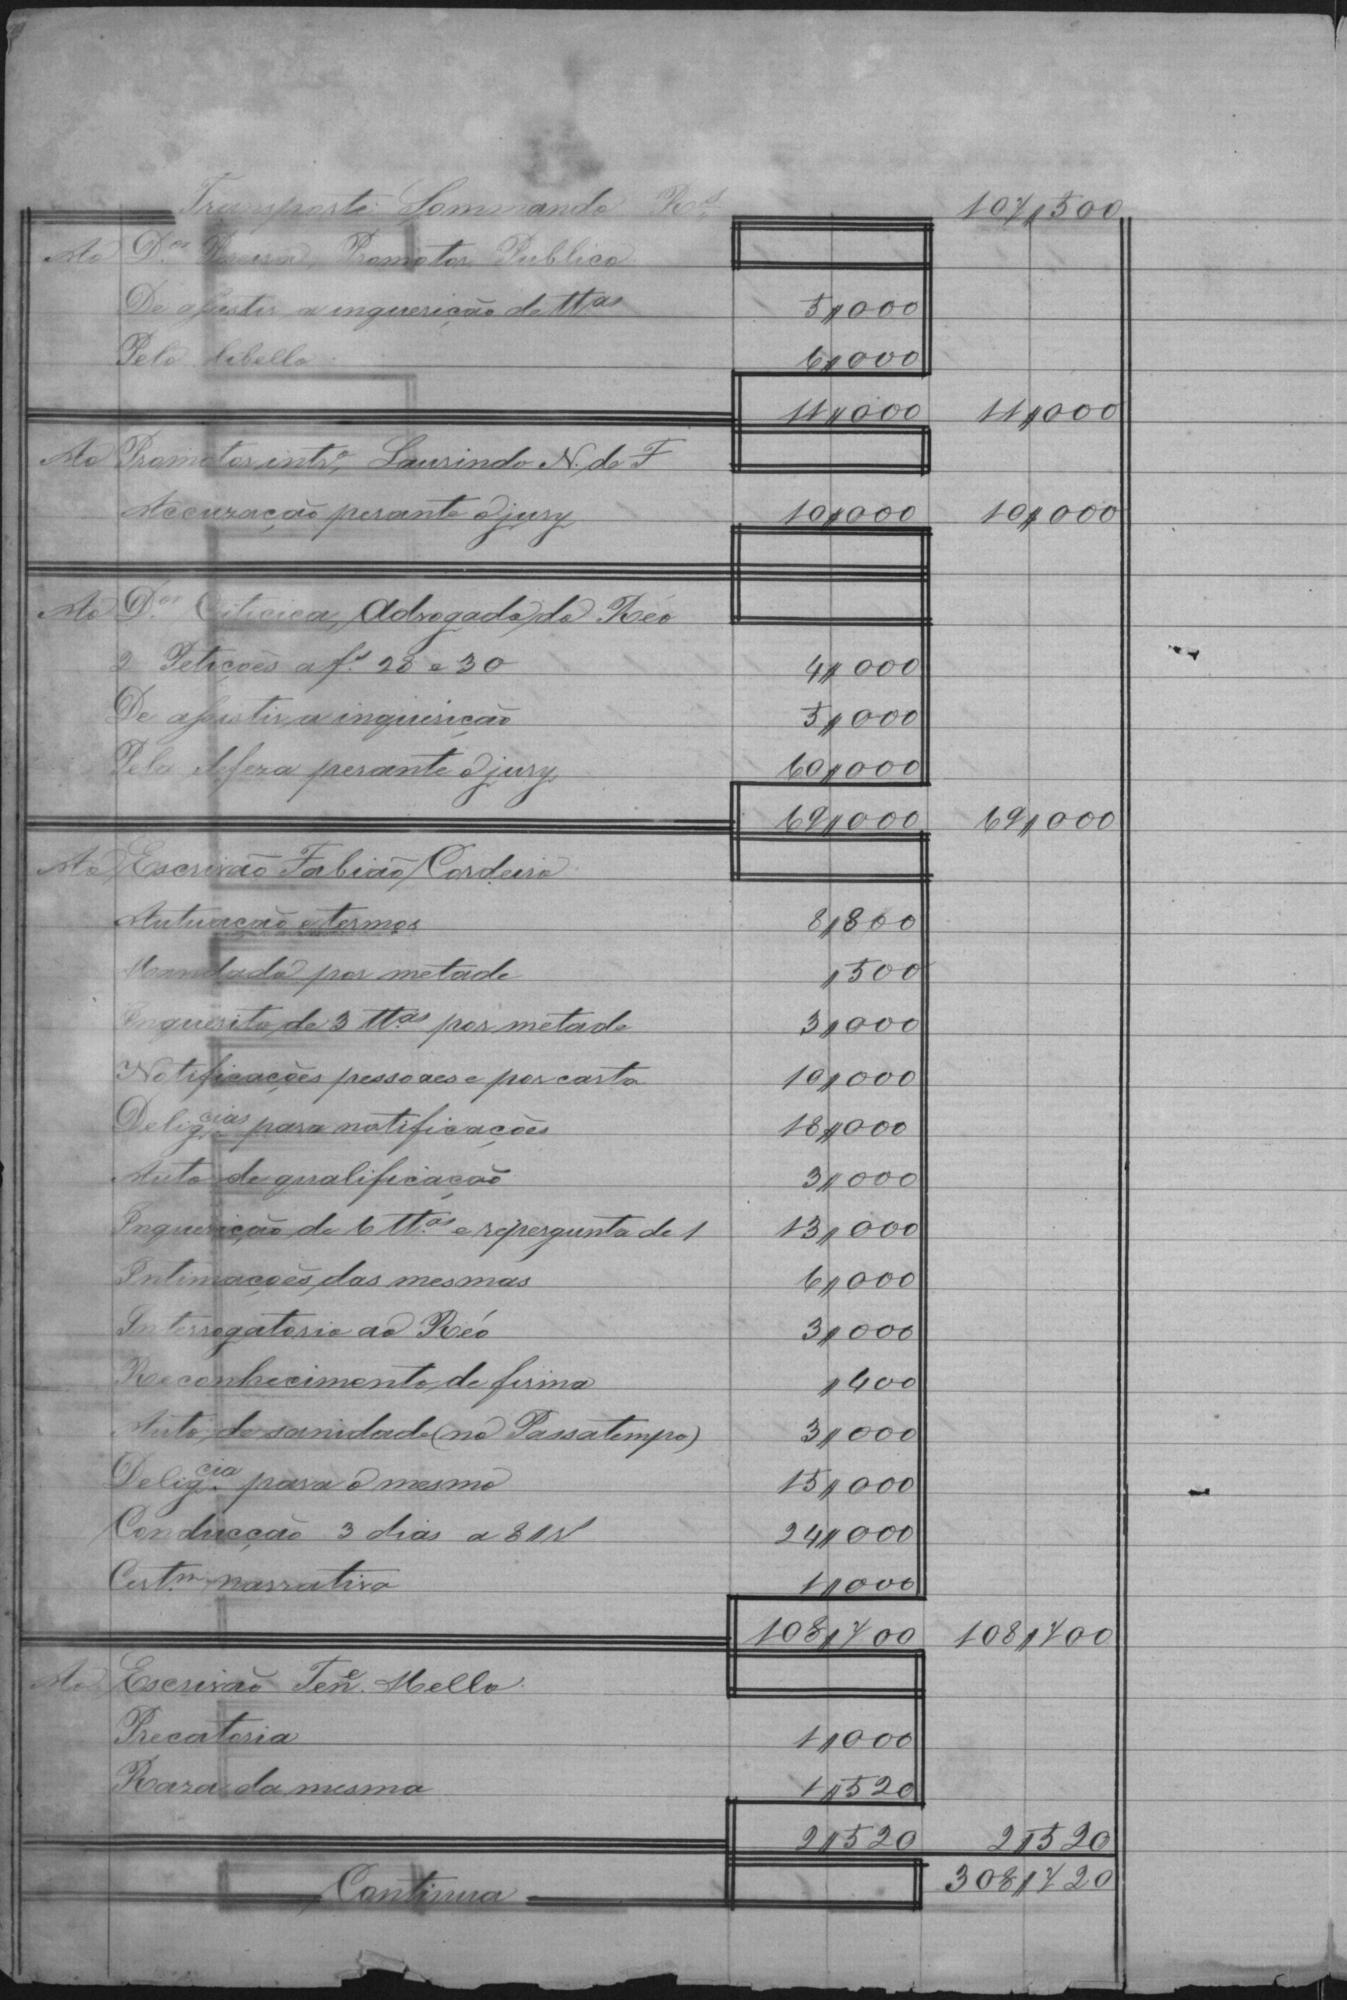 Transporte Sommando R.s 107,500
Ao D.or Pereira, Promotor Publico
De assistir a inquerição de tt.as 5,000
Pelo libello 6,000
11,000 11,000
Ao Promotor int.o Laurindo N. de F
Accuzação perante o jury 10,000 10,000
Ao D.or Citicica, Advogado do Réo
2 Petições a f.s 28 e 30 4,000
De assistir a inquirição 5,000
Pela defeza perante o jury 60,000
69,000 69,000
Ao Escrivão Fabião Cordeiro
Autuação e termos 8,800
Mandado por metade ,500
Inquerito de 3 tt.as por metade 3,000
Notificações pessoaes e por carta 10,000
Delig.cias para notificações 18,000
Auto de qualificação 3,000
Inquerição de 6 tt.as e repergunta de 1 13,000
Intimações das mesmas 6,000
Interrogatorio ao Réo 3,000
Reconhecimento de firma ,400
Auto de sanidade (no Passatempo) 3,000
Delig.cia para o mesmo 15,000
Conducção 3 dias a 8,r 24,000
Cert.m narrativa 1,000
108,700 108,700
Ao Escrivão Ten.e Mello
Precatoria 1,000
Raza da mesma 1,520
2,520 2,520
Continua 308,720